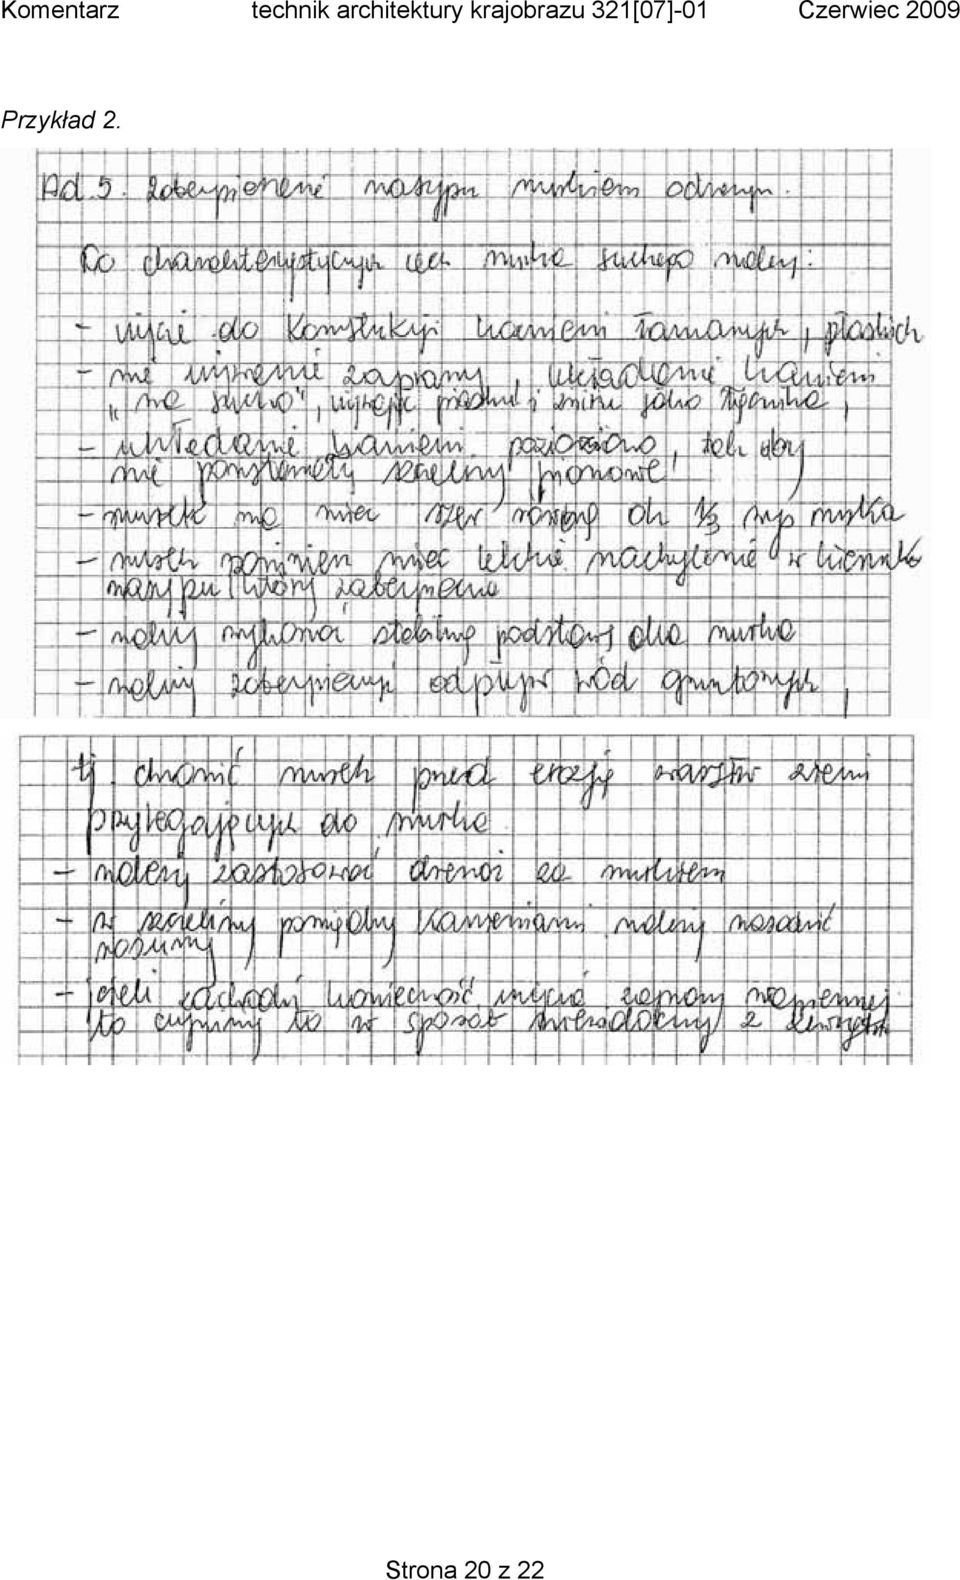 Komentarz technik architektury krajobrazu 321[07]-01 Czerwiec 2009
Przykład 2.
Ad.5. Zabezpieczenie nasypu murkiem oddzielnym.
Do charakterystycznych cech murka suchego należy:
- użycie do konstrukcji kamieni łamanych, płaskich
- nie używanie zaprawy, układanie kamieni
"na sucho", używając piasku i żwiru jako łącznika,
- układanie kamieni poziomo, tak aby
nie powstawały szczeliny pionowe!
- murek ma mieć szer równą ok 1/3 wys murka
- murek powinien mieć lekkie nachylenie w kierunku
nasypu który zabezpiecza
- należy wykonać stabilną podstawę dla murka
- należy zabezpieczyć odpływ wód gruntowych,
tj. chronić murek przed erozją warstw ziemi
przylegających do murka.
- należy zastosować drenaż za murkiem
- w szczeliny pomiędzy kamieniami należy nasadzić
rośliny
- jeżeli zachodzi konieczność użycia zaprawy wapiennej
to czynimy to w sposób niewidoczny z zewnątrz
Strona 20 z 22